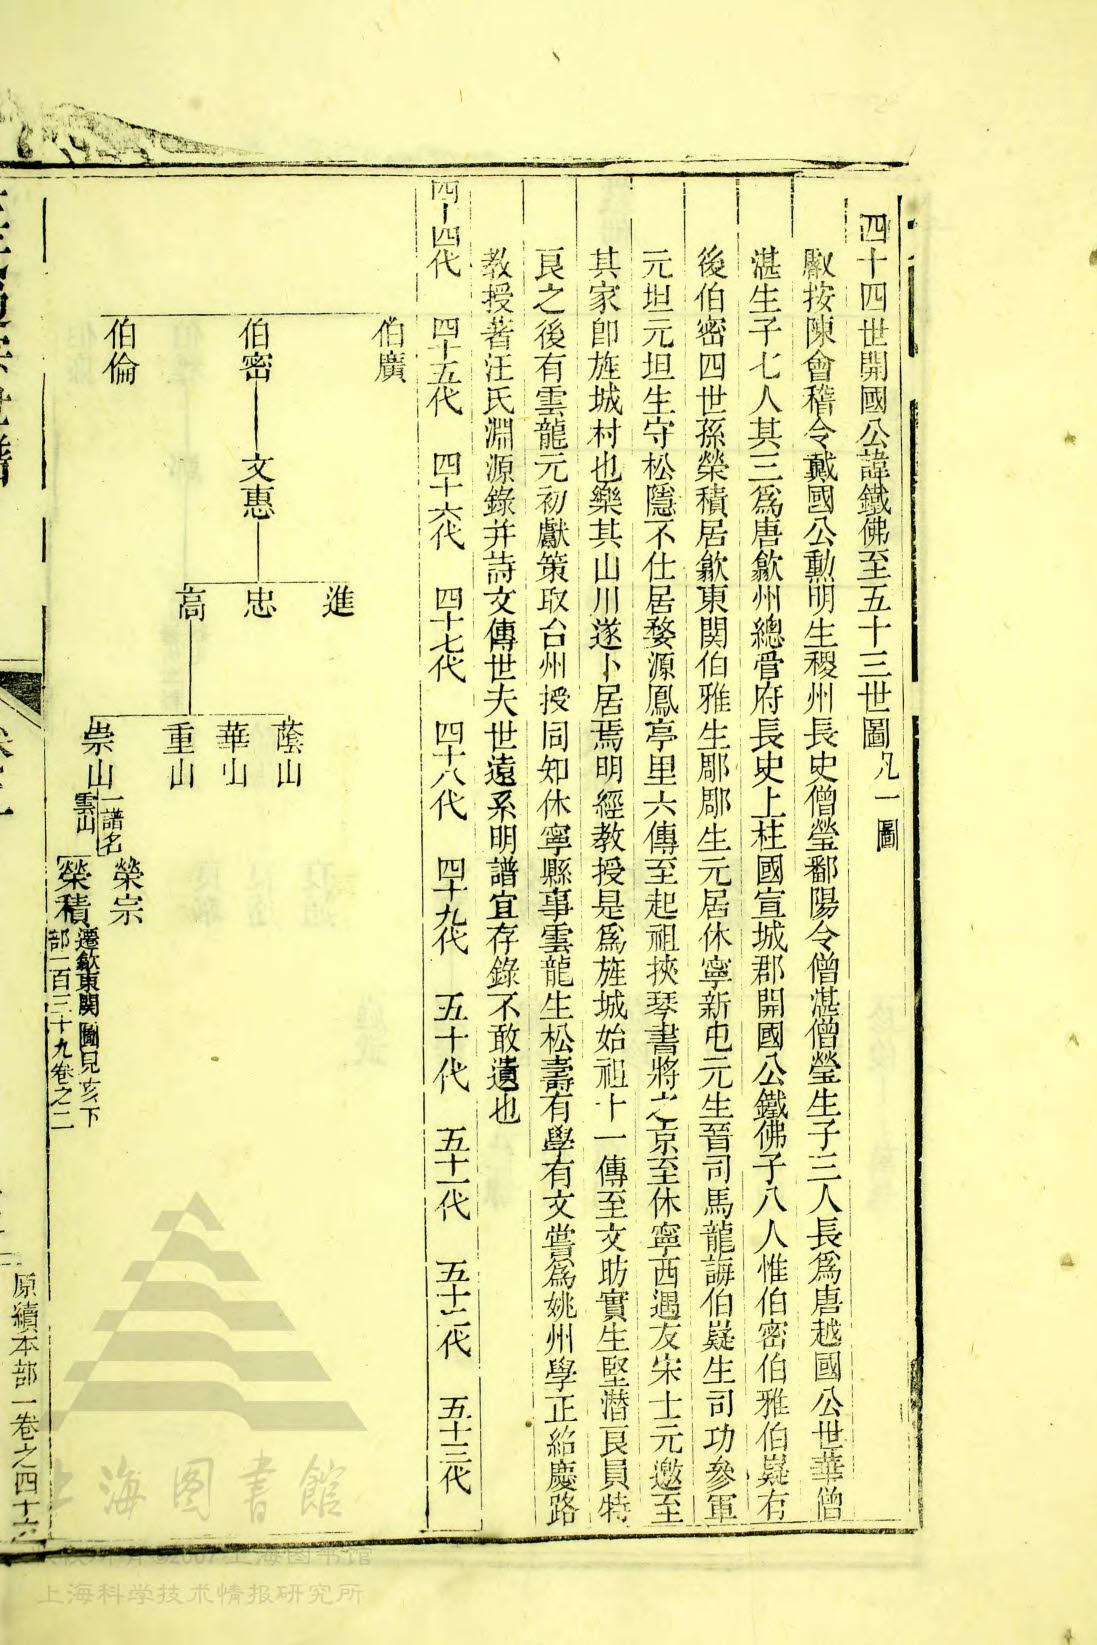 四十四世開國公諱鐵佛至五十三世圖凡一圖
厥按陳會稽令戴國公勳明生稷州長史僧瑩鄱陽令僧湛僧瑩生子三人長爲唐越國公世華僧
湛生子七人其三爲唐歙州總管府長史上柱國宣城郡開國公鐵佛子八人惟伯密伯雅伯嶷有
後伯密四世孫榮積居歙東関伯雅生郿郿生元居休寧新屯元生晉司馬龍誨伯嶷生司功參軍
元坦元坦生守松隱不仕居婺源鳳亭里六傳至起祖挾琴書將之京至休寧西遇友宋士元邀至
其家卽旌城村也樂其山川遂卜居焉明經教授是爲旌城始祖十一傳至文昉實生堅潛良員特
良之後有雲龍元初獻策取台州授同知休寧縣事雲龍生松壽有學有文嘗爲姚州學正紹慶路
教授著汪氏淵源錄并詩文傳世夫世遠系明譜宜存錄不敢遺也
四十四代 四十五代 四十六代 四十七代 四十八代 四十九代 五十代 五十一代 五十二代 五十三代
伯廣
伯密 文惠
伯倫
進
忠
高
蔭山
華山
重山
崇山 一譜名雲山
榮宗
榮積 遷歙東関圖見亥下部一百三十九卷之二
原續本部一卷之四十六
上海图书馆
上海图书馆
上海科学技术情报研究所